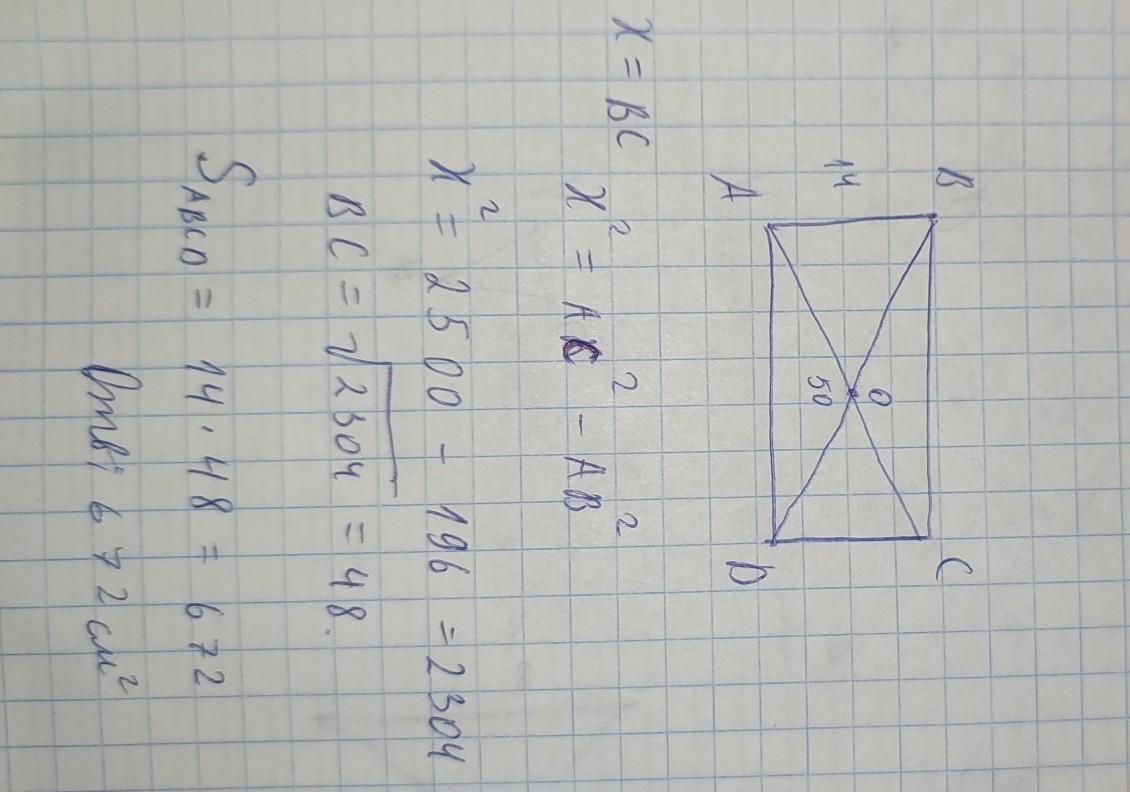 B C
14
O
50
A D
x = BC
x² = AC² - AB²
x² = 2500 - 196 = 2304
BC = √2304 = 48.
S ABCD = 14 · 48 = 672
Отв: 672 см²